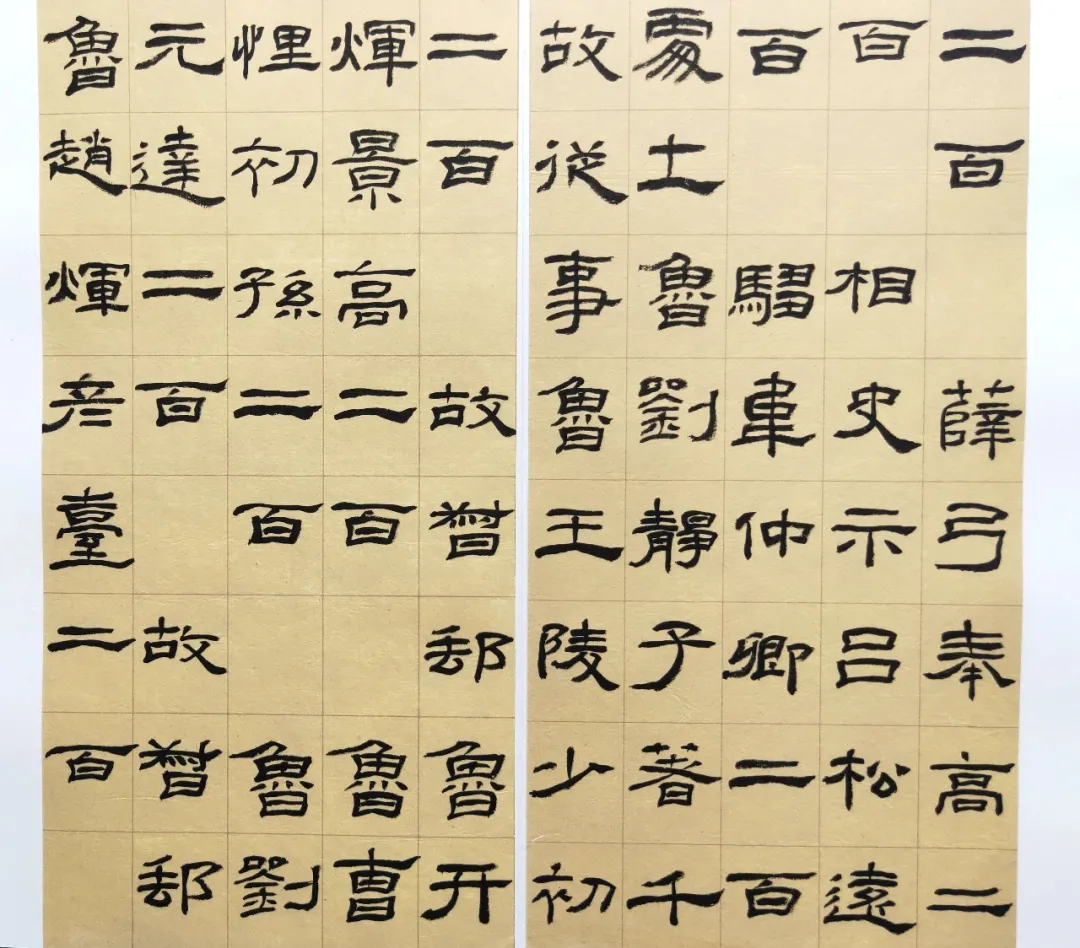 二百薛弓奉高二
百相史卞吕松遠
百騶韋仲卿二百
處士魯劉靜子著千
故從事魯王陵少初
二百故督郵魯开
煇景高二百魯曹
悝初孫二百魯劉
元達二百故督郵
魯趙煇彦臺二百